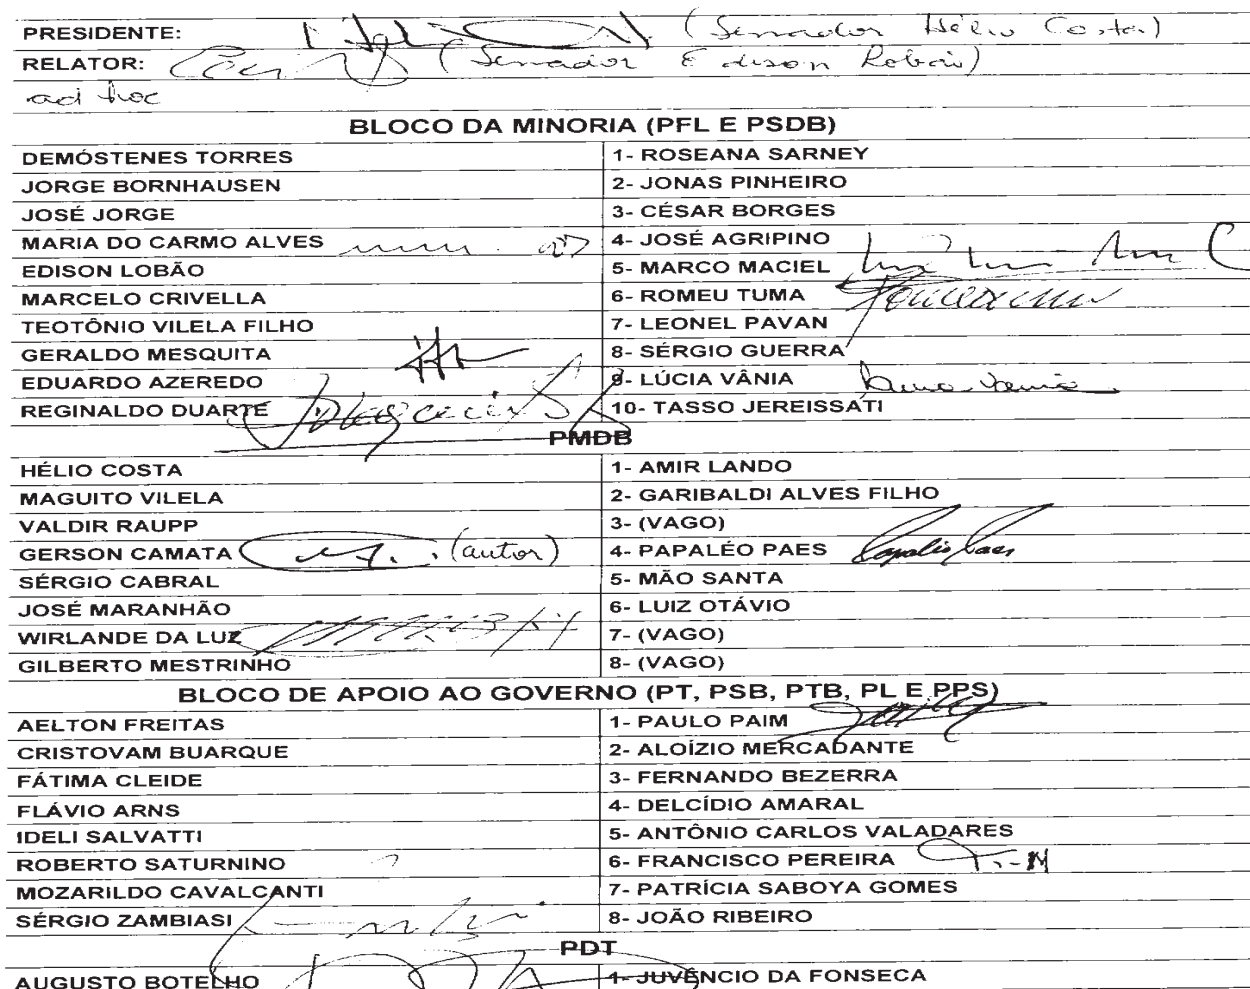 PRESIDENTE: (Senador Hélio Costa)
RELATOR: (Senador Edison Lobão)
ad hoc
BLOCO DA MINORIA (PFL E PSDB)
DEMÓSTENES TORRES 1- ROSEANA SARNEY
JORGE BORNHAUSEN 2- JONAS PINHEIRO
JOSÉ JORGE 3- CÉSAR BORGES
MARIA DO CARMO ALVES 4- JOSÉ AGRIPINO
EDISON LOBÃO 5- MARCO MACIEL
MARCELO CRIVELLA 6- ROMEU TUMA
TEOTÔNIO VILELA FILHO 7- LEONEL PAVAN
GERALDO MESQUITA 8- SÉRGIO GUERRA
EDUARDO AZEREDO 9- LÚCIA VÂNIA
REGINALDO DUARTE 10- TASSO JEREISSATI
PMDB
HÉLIO COSTA 1- AMIR LANDO
MAGUITO VILELA 2- GARIBALDI ALVES FILHO
VALDIR RAUPP 3- (VAGO)
GERSON CAMATA (autor) 4- PAPALÉO PAES Papaléo Paes
SÉRGIO CABRAL 5- MÃO SANTA
JOSÉ MARANHÃO 6- LUIZ OTÁVIO
WIRLANDE DA LUZ 7- (VAGO)
GILBERTO MESTRINHO 8- (VAGO)
BLOCO DE APOIO AO GOVERNO (PT, PSB, PTB, PL E PPS)
AELTON FREITAS 1- PAULO PAIM
CRISTOVAM BUARQUE 2- ALOÍZIO MERCADANTE
FÁTIMA CLEIDE 3- FERNANDO BEZERRA
FLÁVIO ARNS 4- DELCÍDIO AMARAL
IDELI SALVATTI 5- ANTÔNIO CARLOS VALADARES
ROBERTO SATURNINO 6- FRANCISCO PEREIRA
MOZARILDO CAVALCANTI 7- PATRÍCIA SABOYA GOMES
SÉRGIO ZAMBIASI 8- JOÃO RIBEIRO
PDT
AUGUSTO BOTELHO 1- JUVÊNCIO DA FONSECA